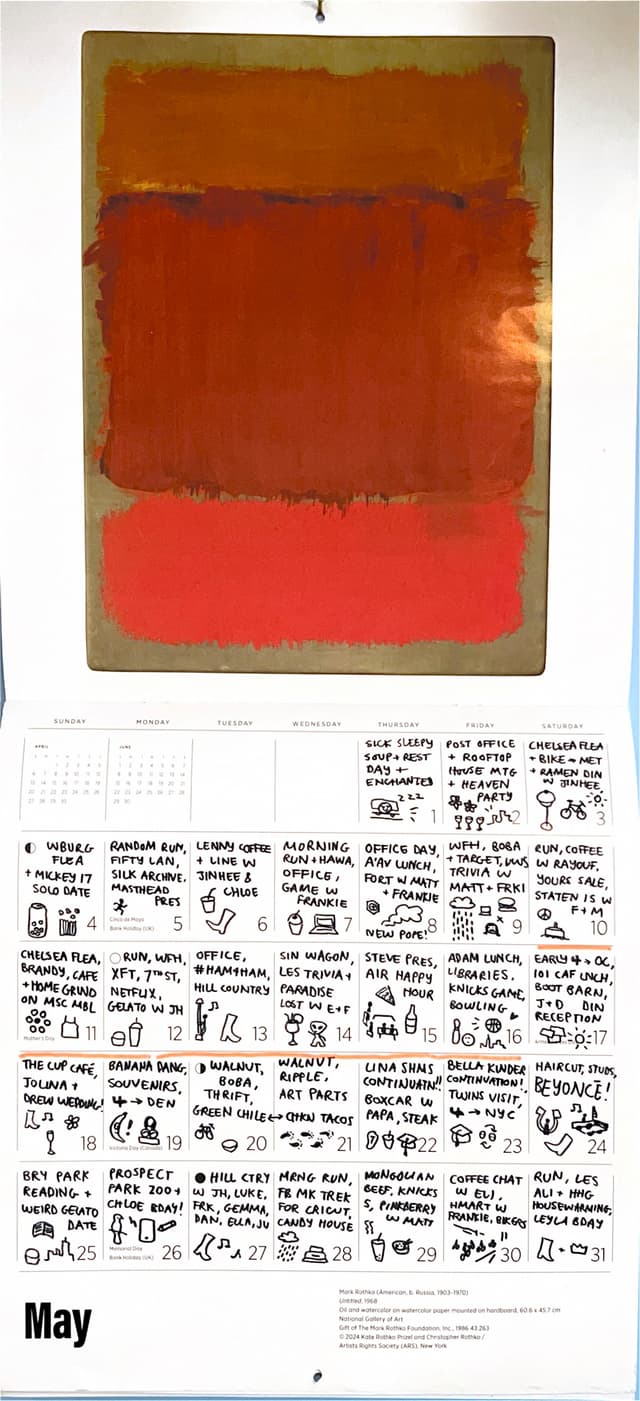 SUNDAY MONDAY TUESDAY WEDNESDAY THURSDAY FRIDAY SATURDAY
APRIL
JUNE
SICK SLEEPY
SOUP + REST
DAY +
ENCHANTED
ZZZ
1
POST OFFICE
+ ROOFTOP
HOUSE MTG
+ HEAVEN
PARTY
2
CHELSEA FLEA
+ BIKE → MET
+ RAMEN DIN
W JINHEE
3
WBURG
FLEA
+ MICKEY 17
SOLO DATE
4
RANDOM RUN,
FIFTY LAN,
SILK ARCHIVE,
MASTHEAD
PRES
Cinco de Mayo
Bank Holiday (UK)
5
LENNY COFFEE
+ LINE W
JINHEE &
CHLOE
6
MORNING
RUN + HAWA,
OFFICE,
GAME W
FRANKIE
7
OFFICE DAY,
A'AV LUNCH,
FORT W MATT
+ FRANKIE
NEW POPE!
8
WFH, BOBA
+ TARGET,
TRIVIA W
MATT + FRKI
9
RUN, COFFEE
W RAYOUF,
YOURS SALE,
STATEN IS W
F + M
10
CHELSEA FLEA,
BRANDY, CAFE
+ HOME GRWD
ON MSC MBL
Mother's Day
11
RUN, WFH,
XFT, 7TH ST,
NETFLUX,
GELATO W JH
12
OFFICE,
#HAM4HAM,
HILL COUNTRY
13
SIN WAGON,
LES TRIVIA +
PARADISE
LOST W E+F
14
STEVE PRES,
AIR HAPPY
HOUR
15
ADAM LUNCH,
LIBRARIES,
KNICKS GAME,
BOWLING
16
EARLY → OC,
101 CAF LNCH,
BOOT BARN,
J+D DIN
RECEPTION
17
THE CUP CAFÉ,
JOLINA +
DREW WEDDING!
18
BANANA DANG,
SOUVENIRS,
→ DEN
Victoria Day (Canada)
19
WALNUT,
BOBA,
THRIFT,
GREEN CHILE
20
WALNUT,
RIPPLE,
ART PARTS
CHKN TACOS
21
LINA SHNS
CONTINUATN!!
BOXCAR W
PAPA, STEAK
22
BELLA KINDER
CONTINUATION!
TWINS VISIT,
→ NYC
23
HAIRCUT, STUDS,
BEYONCÉ!
24
BRY PARK
READING +
WEIRD GELATO
DATE
25
PROSPECT
PARK ZOO +
CHLOE BDAY!
Memorial Day
Bank Holiday (UK)
26
HILL CTRY
W JH, LUKE,
FRK, GEMMA,
DAN, ELLA, JU
27
MRNG RUN,
FB MK TREK
FOR CRICUT,
CANDY HOUSE
28
MONGOLIAN
BEEF, KNICKS
S, PINKBERRY
W MATT
29
COFFEE CHAT
W ELI,
HMART W
FRANKIE, BIKERS
30
RUN, LES
ALI + HHG
HOUSEWARMING,
LEYLA BDAY
31
May
Mark Rothko (American, b. Russia, 1903–1970)
Untitled, 1968
Oil and watercolor on watercolor paper mounted on hardboard, 60.6 x 45.7 cm
National Gallery of Art
Gift of The Mark Rothko Foundation, Inc., 1986.43.263
© 2024 Kate Rothko Prizel and Christopher Rothko /
Artists Rights Society (ARS), New York